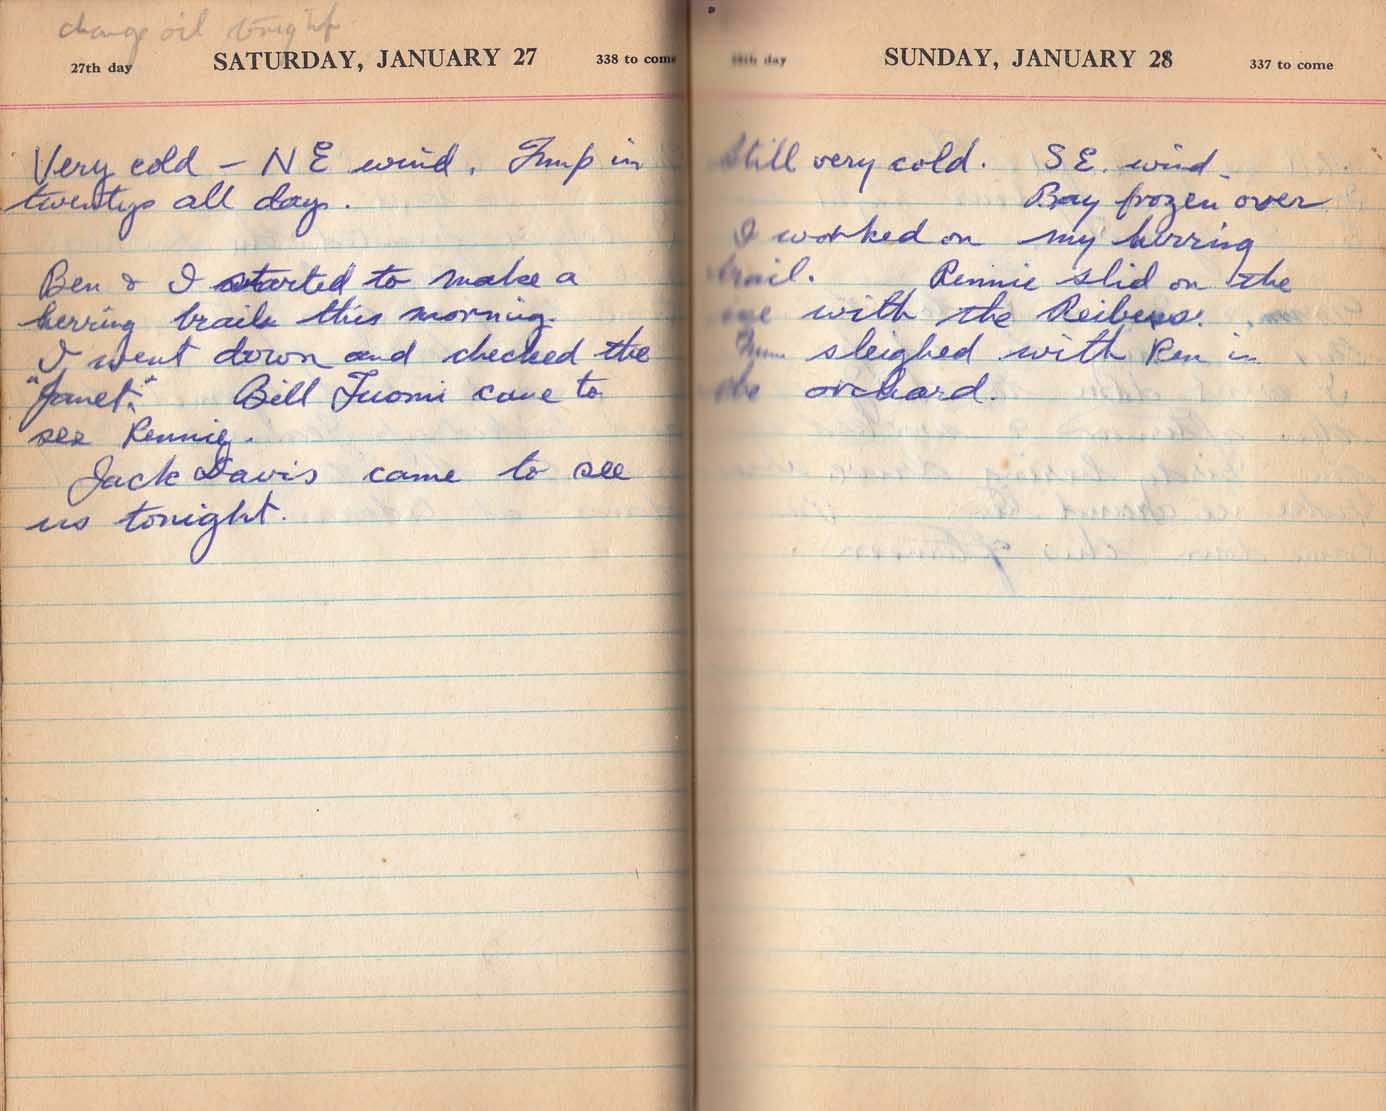 change oil tonight
27th day SATURDAY, JANUARY 27 338 to come
Very cold – N E wind. Temp in
twentys all day.
Ben & I started to make a
herring brails this morning.
I went down and checked the
"Janet". Bill Tuomi came to
see Rennie.
Jack Davis came to see
us tonight.
28th day SUNDAY, JANUARY 28 337 to come
Still very cold. S E. wind.
Bay frozen over
I worked on my herring
brail. Rennie slid on the
ice with the
sleighed with Ren in
the orchard.